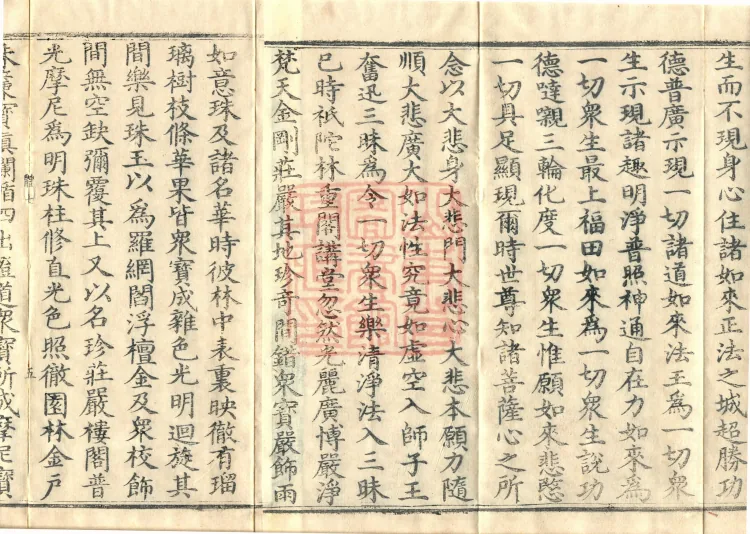 生而不現身心住諸如來正法之城超勝功
德普廣示現一切諸道如來法王為一切衆
生示現諸趣明淨普照神通自在力如來為
一切衆生最上福田如來為一切衆生說功
德噠嚫三輪化度一切衆生惟願如來悲愍
一切具足顯現爾時世尊知諸菩薩心之所
念以大悲身大悲門大悲心大悲本願力隨
順大悲廣大如法性究竟如虛空入師子王
奮迅三昧為令一切衆生樂清淨法入三昧
已時祇陀林重閣講堂忽然光麗廣博嚴淨
梵天金剛莊嚴其地珍奇間錯衆寶嚴飾雨
如意珠及諸名華時彼林中表裏映徹有瑠
璃樹枝條華果皆衆寶成雜色光明迴旋其
間樂見珠王以為羅網閻浮檀金及衆校飾
間無空缺彌覆其上又以名珍莊嚴樓閣普
光摩尼為明珠柱修直光色照徹園林金戶
五
四出證道衆寶所成摩尼寶